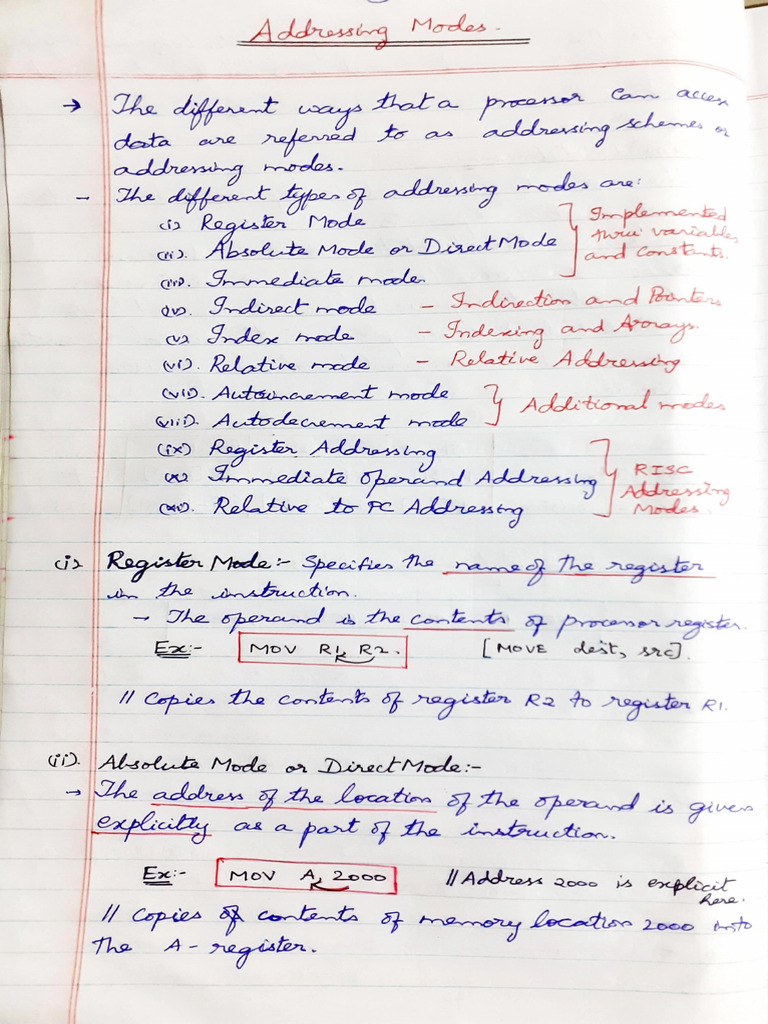 Addressing Modes.
→ The different ways that a processor can access
data are referred to as addressing schemes or
addressing modes.
- The different types of addressing modes are:
(i) Register Mode
(ii). Absolute Mode or Direct Mode } Implemented thru variables and constants.
(iii). Immediate mode.
(iv). Indirect mode - Indirection and Pointers
(v) Index mode - Indexing and Arrays.
(vi). Relative mode - Relative Addressing
(vii). Autoincrement mode
(viii). Autodecrement mode } Additional modes
(ix) Register Addressing
(x) Immediate Operand Addressing } RISC Addressing Modes.
(xi). Relative to PC Addressing
(i) Register Mode:- Specifies the name of the register
in the instruction.
→ The operand is the contents of processor register.
Ex:- MOV R1, R2. [MOVE dest, src].
// Copies the contents of register R2 to register R1.
(ii). Absolute Mode or Direct Mode:-
→ The address of the location of the operand is given
explicitly as a part of the instruction.
Ex:- MOV A, 2000 // Address 2000 is explicit
here.
// Copies of contents of memory location 2000 into
the A-register.